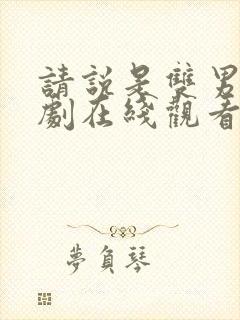 請說是雙男
劇在綫觀看
夢負琴